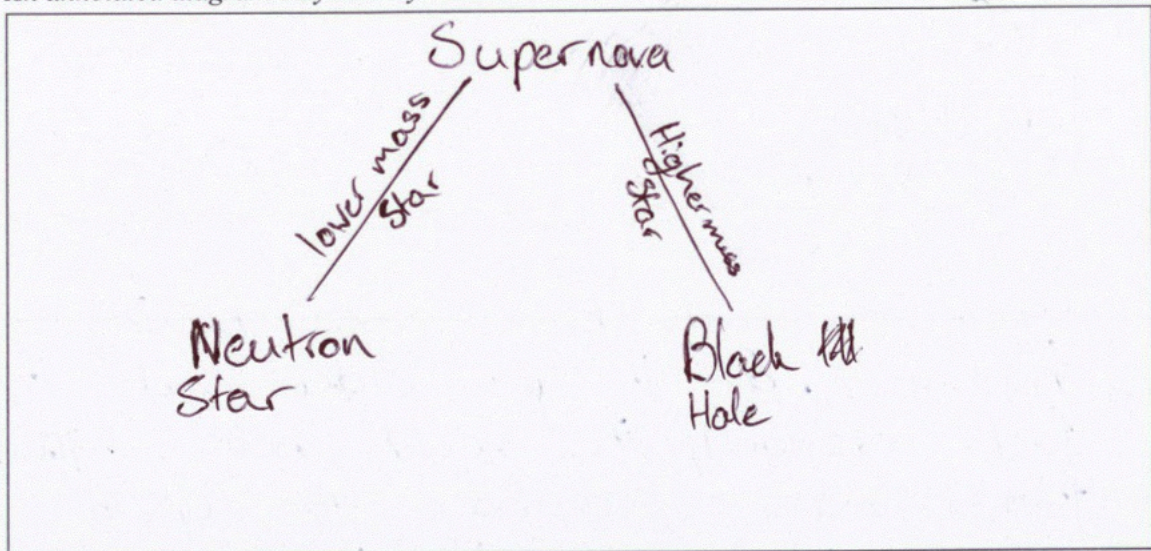 Supernova
lower mass
star
Higher mass
star
Neutron
Star
Black
Hole